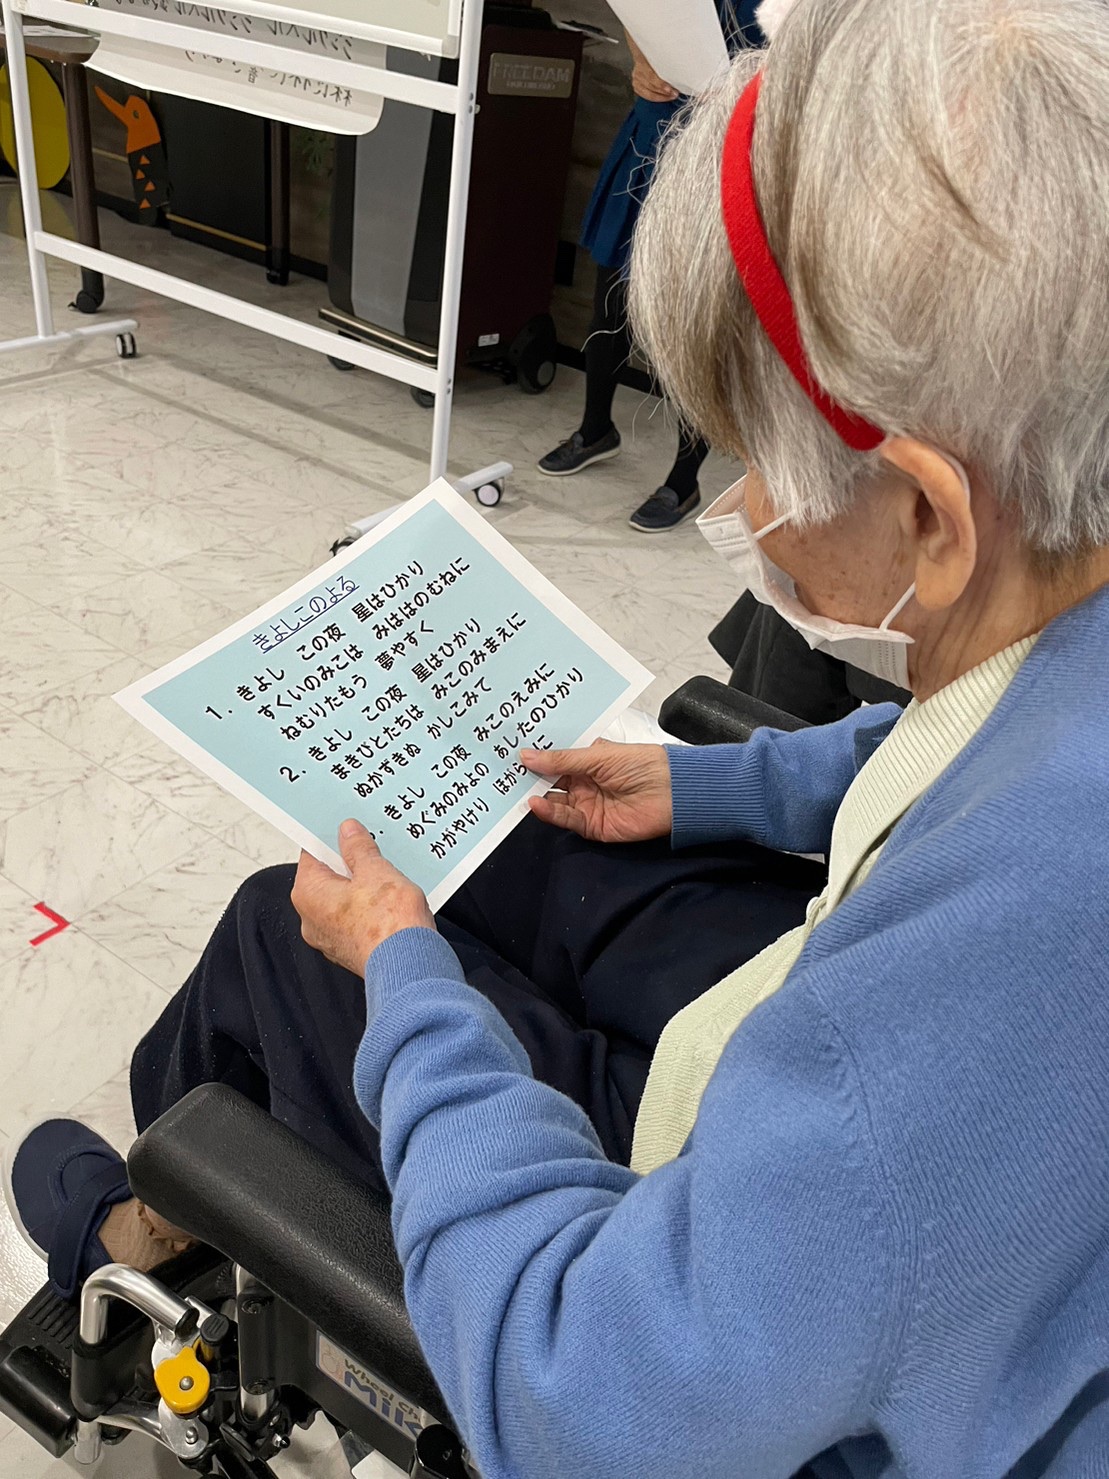 FREEDAM
ジングルベル ジングルベル
きよしこのよる
1. きよし この夜 星はひかり
すくいのみこは みははのむねに
ねむりたもう 夢やすく
2. きよし この夜 星はひかり
まきびとたちは みこのみまえに
ぬかずきぬ かしこみて
きよし この夜 みこのえみに
めぐみのみよの あしたのひかり
かがやけり ほがら に
Wheel Ch
MiK